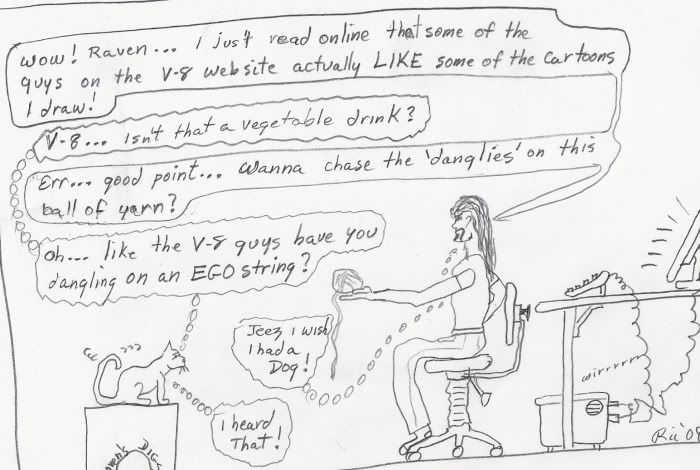 Wow! Raven... I just read online that some of the
guys on the V-8 website actually LIKE some of the cartoons
I draw!
V-8... Isn't that a vegetable drink?
Err... good point... Wanna chase the 'danglies' on this
ball of yarn?
Oh... like the V-8 guys have you
dangling on an EGO string?
Jeez I wish
I had a
Dog!
I heard
That!
wirrrrrr